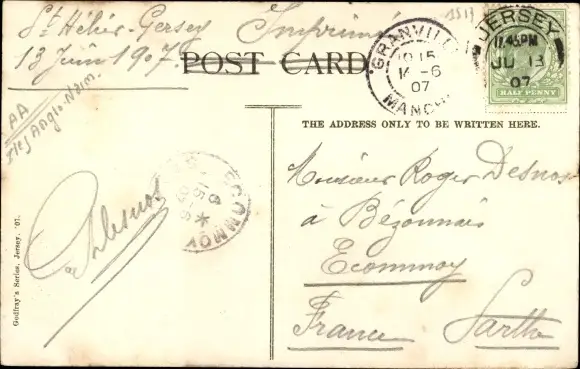 St Hélier-Jersey Imprimé
13 Juin 1907
POST CARD
GRANVILLE
10 15
14 -6
07
MANCHE
JERSEY
11.45PM
JU 13
07
HALF PENNY
AA
Iles Anglo-Norm.
THE ADDRESS ONLY TO BE WRITTEN HERE.
Monsieur Roger Desnos
à Bézonnais
Ecommoy
France Sarthe
Desnos
ECOMMOY
Godfray's Series, Jersey, '07.